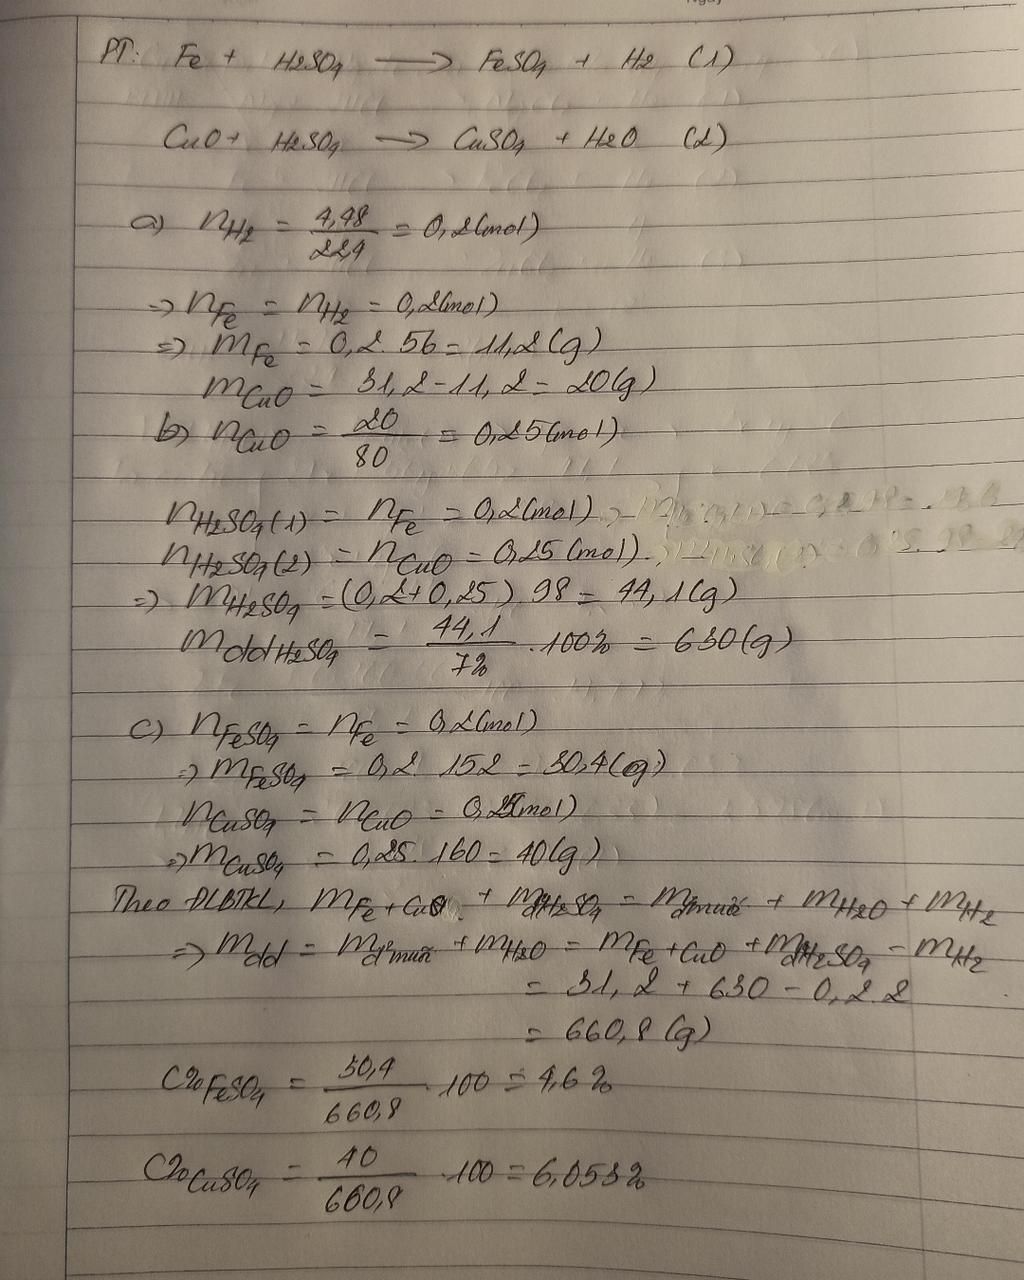 PT: Fe + H2SO4 → FeSO4 + H2 (1)
CuO + H2SO4 → CuSO4 + H2O (2)
a) nH2 = 4,48 / 224 = 0,2(mol)
=> nFe = nH2 = 0,2(mol)
=> mFe = 0,2. 56 = 11,2(g)
mCuO = 31,2 - 11,2 = 20(g)
b) nCuO = 20 / 80 = 0,25(mol)
nH2SO4(1) = nFe = 0,2(mol)
nH2SO4(2) = nCuO = 0,25(mol)
=> mH2SO4 = (0,2+0,25). 98 = 44,1(g)
mddH2SO4 = 44,1 / 7% . 100% = 630(g)
c) nFeSO4 = nFe = 0,2(mol)
=> mFeSO4 = 0,2. 152 = 30,4(g)
nCuSO4 = nCuO = 0,25(mol)
=> mCuSO4 = 0,25. 160 = 40(g)
Theo ĐLBTKL, mFe + CuO + mddH2SO4 = mdd muối + mH2O + mH2
=> mdd = mdd muối + mH2O = mFe + CuO + mddH2SO4 - mH2
= 31,2 + 630 - 0,2.2
= 660,8(g)
C%FeSO4 = 30,4 / 660,8 . 100 = 4,6%
C%CuSO4 = 40 / 660,8 . 100 = 6,053%